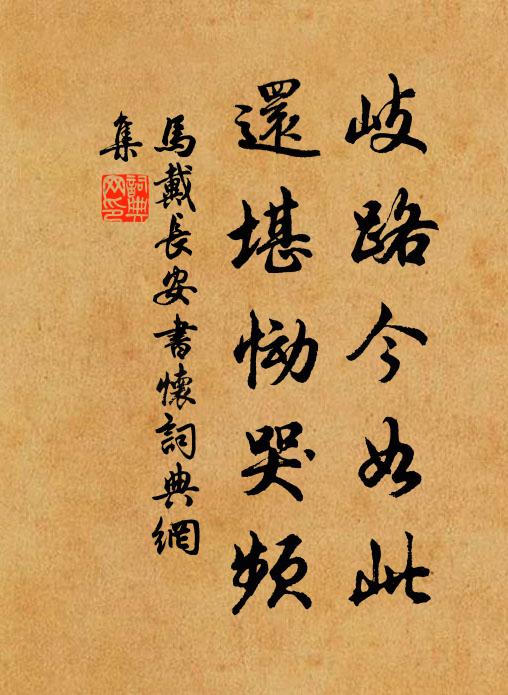 岐路今如此
還堪慟哭頻
馬戴長安書懷詞典網
集
詞典
网印